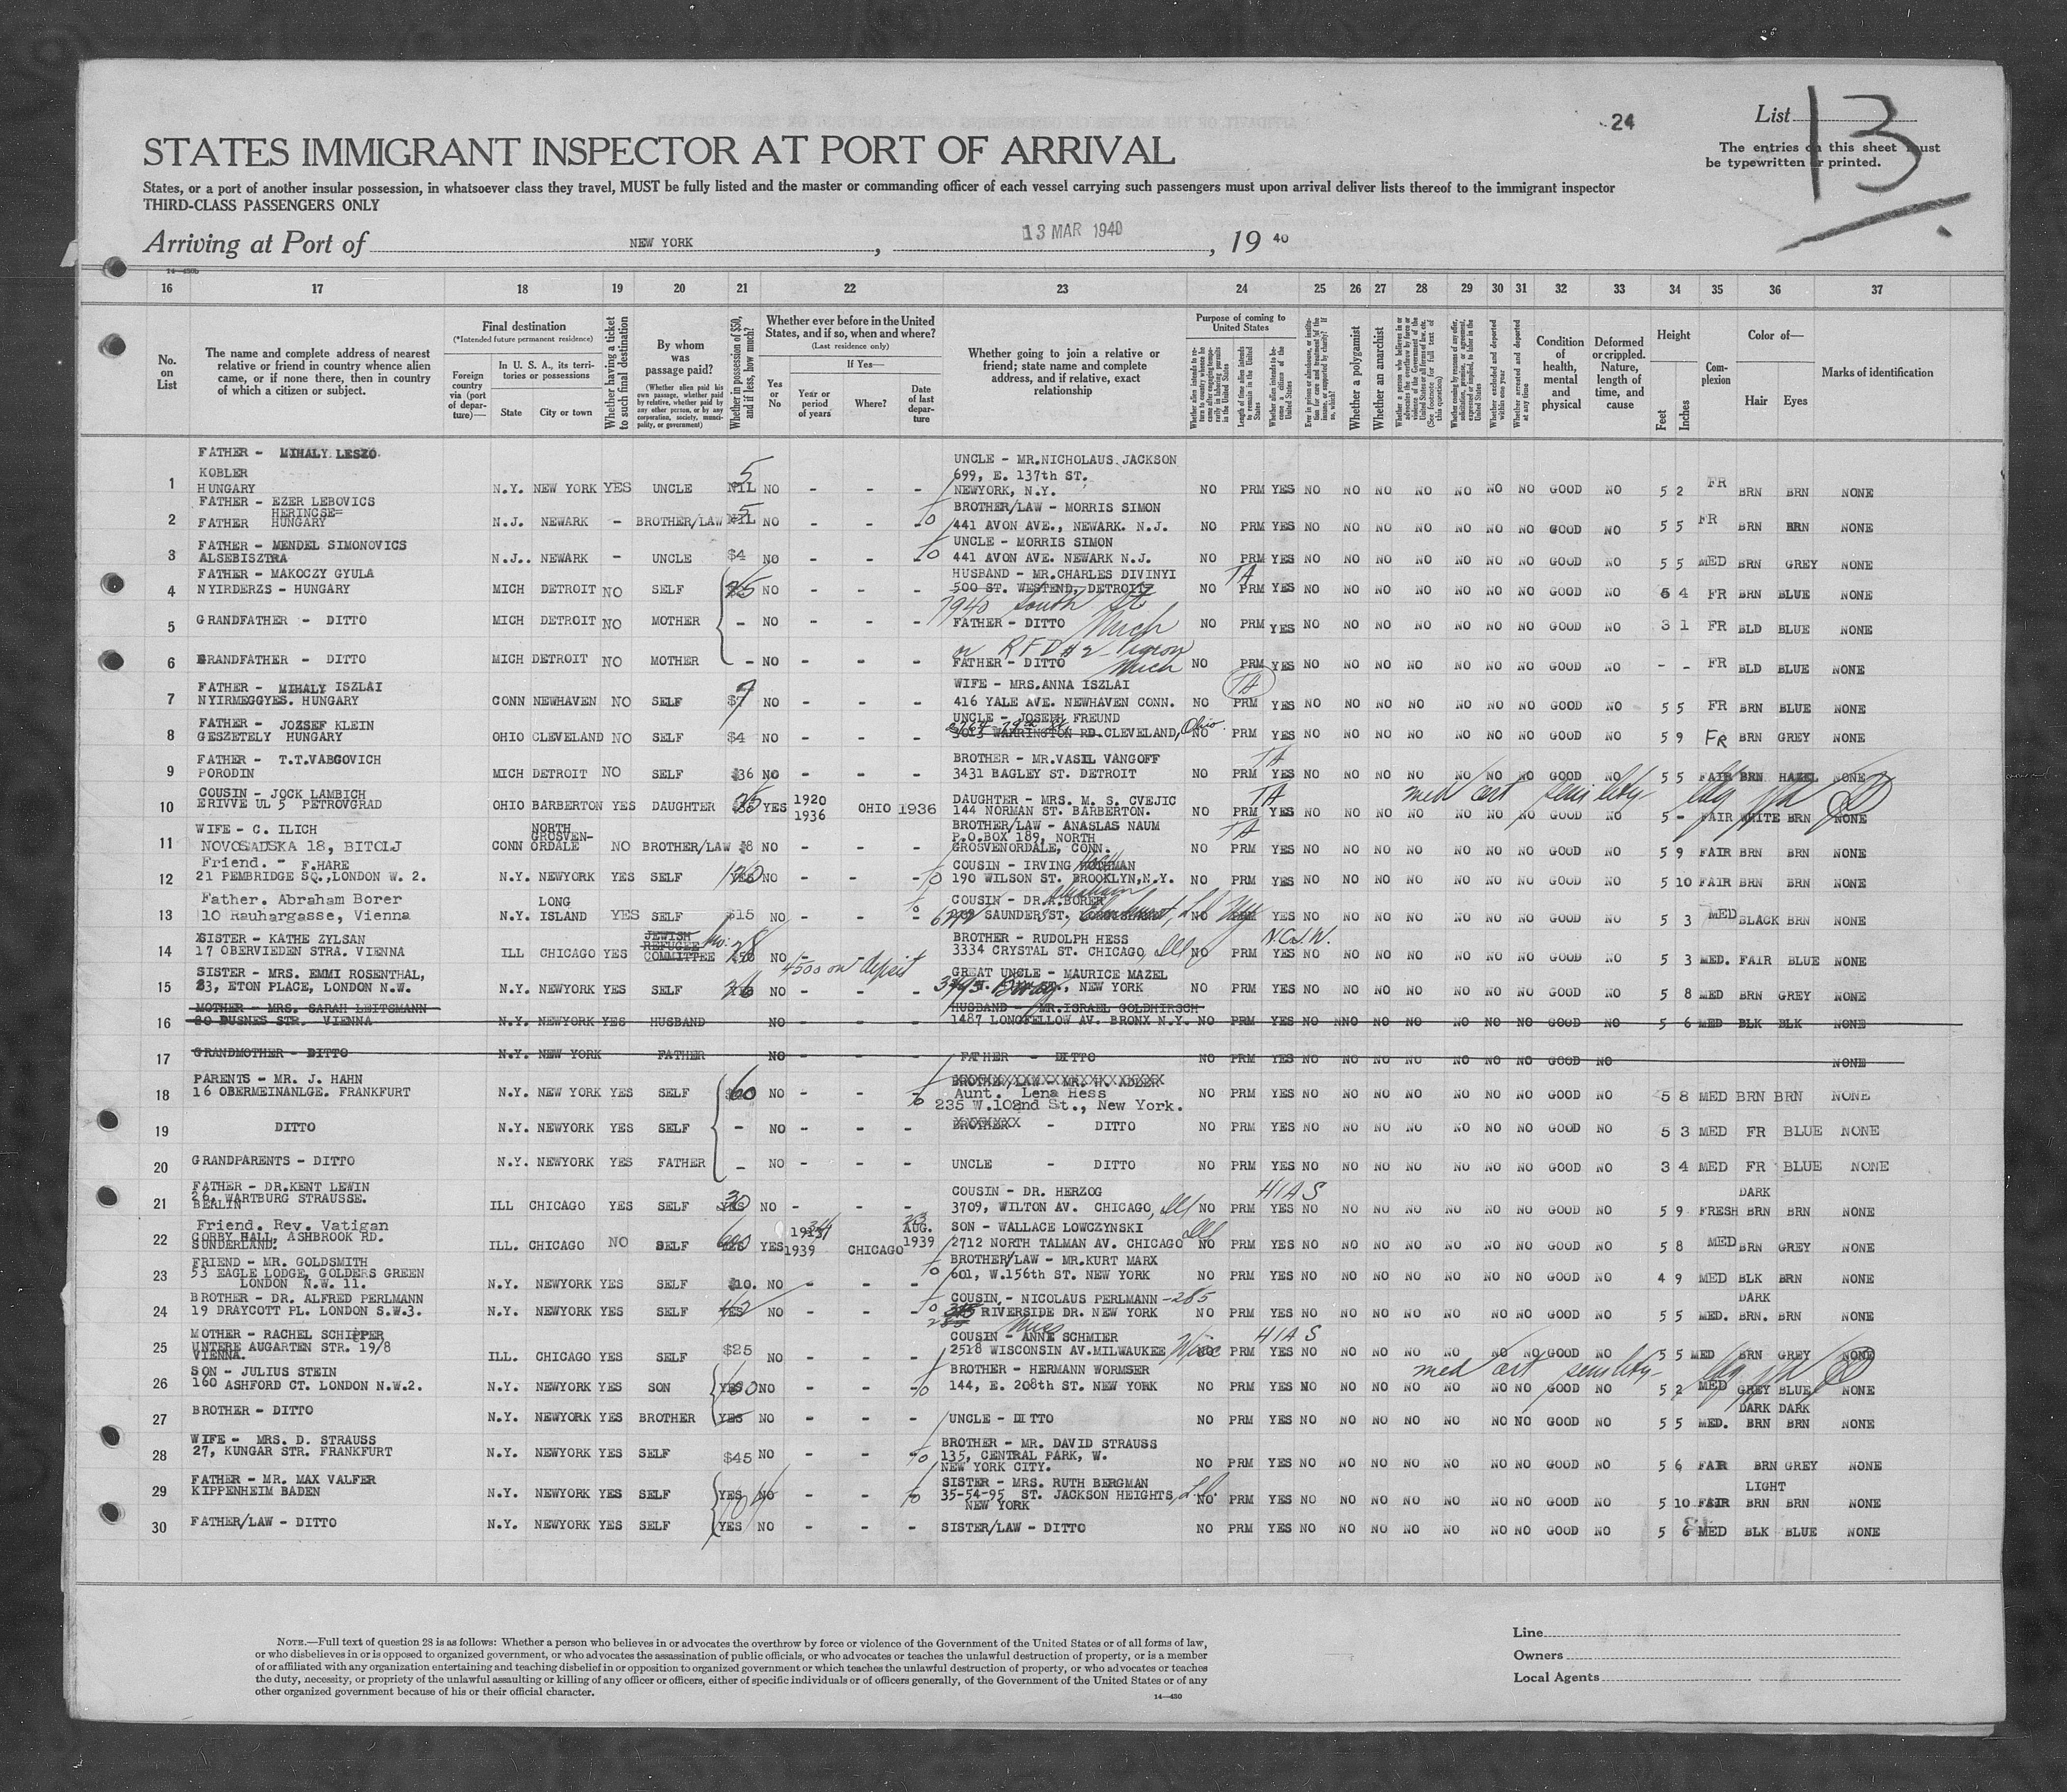 24
List 13
The entries on this sheet must
be typewritten or printed.
STATES IMMIGRANT INSPECTOR AT PORT OF ARRIVAL
States, or a port of another insular possession, in whatsoever class they travel, MUST be fully listed and the master or commanding officer of each vessel carrying such passengers must upon arrival deliver lists thereof to the immigrant inspector
THIRD-CLASS PASSENGERS ONLY
Arriving at Port of NEW YORK, 13 MAR 1940, 19 40
14—430b
16 17 18 19 20 21 22 23 24 25 26 27 28 29 30 31 32 33 34 35 36 37
No. on List
The name and complete address of nearest relative or friend in country whence alien came, or if none there, then in country of which a citizen or subject.
Final destination
(*Intended future permanent residence)
Foreign country via (port of departure)—
In U. S. A., its territories or possessions
State City or town
Whether having a ticket to such final destination
By whom was passage paid?
(Whether alien paid his own passage, whether paid by relative, whether paid by any other person, or by any corporation, society, municipality, or government)
Whether in possession of $50, and if less, how much?
Whether ever before in the United States, and if so, when and where?
(Last residence only)
Yes or No
If Yes—
Year or period of years
Where?
Date of last departure
Whether going to join a relative or friend; state name and complete address, and if relative, exact relationship
Purpose of coming to United States
Length of time alien intends to remain in the United States
Whether alien intends to become a citizen of the United States
Whether a polygamist
Whether an anarchist
Whether excluded and deported within one year
Whether arrested and deported at any time
Condition of health, mental and physical
Deformed or crippled. Nature, length of time, and cause
Height
Feet Inches
Complexion
Color of—
Hair Eyes
Marks of identification
FATHER - MIHALY LESZO UNCLE - MR.NICHOLAUS JACKSON
KOBLER 699, E. 137th ST.
1 HUNGARY N.Y. NEW YORK YES UNCLE NIL 5 NO - - - NEWYORK, N.Y. NO PRM YES NO NO NO NO NO NO NO GOOD NO 5 2 FR BRN BRN NONE
FATHER - EZER LEBOVICS BROTHER/LAW - MORRIS SIMON
HERINCSE=
2 FATHER HUNGARY N.J. NEWARK - BROTHER/LAW NIL 5 NO - - - 441 AVON AVE., NEWARK. N.J. NO PRM YES NO NO NO NO NO NO NO GOOD NO 5 5 FR BRN BRN NONE
FATHER - MENDEL SIMONOVICS UNCLE - MORRIS SIMON
3 ALSEBISZTRA N.J.. NEWARK - UNCLE $4 NO - - - 441 AVON AVE. NEWARK N.J. NO PRM YES NO NO NO NO NO NO NO GOOD NO 5 5 MED BRN GREY NONE
FATHER - MAKOCZY GYULA HUSBAND - MR.CHARLES DIVINYI TA
4 NYIRDERZS - HUNGARY MICH DETROIT NO SELF 25 NO - - - 500 ST. WESTEND, DETROIT NO PRM YES NO NO NO NO NO NO NO GOOD NO 5 4 FR BRN BLUE NONE
7940 South St
5 GRANDFATHER - DITTO MICH DETROIT NO MOTHER - NO - - - FATHER - DITTO Mich NO PRM YES NO NO NO NO NO NO NO GOOD NO 3 1 FR BLD BLUE NONE
or RFD #2
6 GRANDFATHER - DITTO MICH DETROIT NO MOTHER - NO - - - FATHER - DITTO Mich NO PRM YES NO NO NO NO NO NO NO GOOD NO - - FR BLD BLUE NONE
FATHER - MIHALY ISZLAI WIFE - MRS.ANNA ISZLAI TA
7 NYIRMEGGYES. HUNGARY CONN NEWHAVEN NO SELF $7 NO - - - 416 YALE AVE. NEWHAVEN CONN. NO PRM YES NO NO NO NO NO NO NO GOOD NO 5 5 FR BRN BLUE NONE
FATHER - JOZSEF KLEIN UNCLE - JOSEPH FREUND
8 GESZETELY HUNGARY OHIO CLEVELAND NO SELF $4 NO - - - WARRINGTON RD. CLEVELAND, Ohio NO PRM YES NO NO NO NO NO NO NO GOOD NO 5 9 FR BRN GREY NONE
FATHER - T.T.VABGOVICH BROTHER - MR.VASIL VANGOFF TA
9 PORODIN MICH DETROIT NO SELF $36 NO - - - 3431 BAGLEY ST. DETROIT NO PRM YES NO NO NO NO NO NO NO GOOD NO 5 5 FAIR BRN HAZEL NONE
COUSIN - JOCK LAMBICH 1920 DAUGHTER - MRS. M. S. CVEJIC TA med cert senility
10 ERIVVE UL 5 PETROVGRAD OHIO BARBERTON YES DAUGHTER 25 YES 1936 OHIO 1936 144 NORMAN ST. BARBERTON. NO PRM YES NO NO NO NO NO NO NO GOOD NO 5 - FAIR WHITE BRN NONE
WIFE - C. ILICH NORTH GROSVEN- BROTHER/LAW - ANASLAS NAUM TA
P.O.BOX 189, NORTH
11 NOVOSADSKA 18, BITOLJ CONN ORDALE NO BROTHER/LAW $8 NO - - - GROSVENORDALE, CONN. NO PRM YES NO NO NO NO NO NO NO GOOD NO 5 9 FAIR BRN BRN NONE
Friend. - F.HARE COUSIN - IRVING
12 21 PEMBRIDGE SQ.,LONDON W. 2. N.Y. NEWYORK YES SELF YES NO - - - 190 WILSON ST. BROOKLYN,N.Y. NO PRM YES NO NO NO NO NO NO NO GOOD NO 5 10 FAIR BRN BRN NONE
Father. Abraham Borer LONG COUSIN - DR.K.BORER
13 10 Rauhargasse, Vienna N.Y. ISLAND YES SELF $15 NO - - - SAUNDERS ST. NO PRM YES NO NO NO NO NO NO NO GOOD NO 5 3 MED BLACK BRN NONE
SISTER - KATHE ZYLSAN JEWISH REFUGEE BROTHER - RUDOLPH HESS N.C.J.W.
14 17 OBERVIEDEN STRA. VIENNA ILL CHICAGO YES COMMITTEE NO - - - 3334 CRYSTAL ST. CHICAGO, Ill NO PRM YES NO NO NO NO NO NO NO GOOD NO 5 3 MED. FAIR BLUE NONE
4500 on deposit
SISTER - MRS. EMMI ROSENTHAL, GREAT UNCLE - MAURICE MAZEL
15 23, ETON PLACE, LONDON N.W. N.Y. NEWYORK YES SELF NO - - - NEW YORK NO PRM YES NO NO NO NO NO NO NO GOOD NO 5 8 MED BRN GREY NONE
MOTHER - MRS. SARAH LEITSMANN HUSBAND - MR.ISRAEL GOLDHIRSCH
16 20 BUSNES STR. VIENNA N.Y. NEWYORK YES HUSBAND NO - - - 1487 LONGFELLOW AV. BRONX N.Y. NO PRM YES NO NNO NO NO NO NO NO GOOD NO 5 6 MED BLK BLK NONE
17 GRANDMOTHER - DITTO N.Y. NEW YORK FATHER NO - - - FATHER - DITTO NO PRM YES NO NO NO NO NO NO NO GOOD NO NONE
PARENTS - MR. J. HAHN BROTHER/LAW - MR. W. ADLER
Aunt. Lena Hess
18 16 OBERMEINANLGE. FRANKFURT N.Y. NEW YORK YES SELF 60 NO - - - 235 W.102nd St., New York. NO PRM YES NO NO NO NO NO NO NO GOOD NO 5 8 MED BRN BRN NONE
19 DITTO N.Y. NEWYORK YES SELF - NO - - - BROTHER - DITTO NO PRM YES NO NO NO NO NO NO NO GOOD NO 5 3 MED FR BLUE NONE
20 GRANDPARENTS - DITTO N.Y. NEWYORK YES FATHER - NO - - - UNCLE - DITTO NO PRM YES NO NO NO NO NO NO NO GOOD NO 3 4 MED FR BLUE NONE
FATHER - DR.KENT LEWIN COUSIN - DR. HERZOG HIAS DARK
26, WARTBURG STRAUSSE.
21 BERLIN ILL CHICAGO YES SELF YES 30 NO - - - 3709, WILTON AV. CHICAGO, Ill NO PRM YES NO NO NO NO NO NO NO GOOD NO 5 9 FRESH BRN BRN NONE
Friend. Rev. Vatigan AUG. SON - WALLACE LOWCZYNSKI
CORBY HALL, ASHBROOK RD.
22 SUNDERLAND. ILL. CHICAGO NO SELF 600 YES 1939 CHICAGO 1939 2712 NORTH TALMAN AV. CHICAGO Ill NO PRM YES NO NO NO NO NO NO NO GOOD NO 5 8 MED BRN GREY NONE
FRIEND - MR. GOLDSMITH BROTHER/LAW - MR.KURT MARX
53 EAGLE LODGE, GOLDERS GREEN
23 LONDON N.W. 11. N.Y. NEWYORK YES SELF $10. NO - - - 601, W.156th ST. NEW YORK NO PRM YES NO NO NO NO NO NO NO GOOD NO 4 9 MED BLK BRN NONE
BROTHER - DR. ALFRED PERLMANN COUSIN, - NICOLAUS PERLMANN -285 DARK
24 19 DRAYCOTT PL. LONDON S.W.3. N.Y. NEWYORK YES SELF YES NO - - - RIVERSIDE DR. NEW YORK NO PRM YES NO NO NO NO NO NO NO GOOD NO 5 5 MED. BRN. BRN NONE
MOTHER - RACHEL SCHIPPER Miss COUSIN - ANNE SCHMIER HIAS
UNTERE AUGARTEN STR. 19/8
25 VIENNA. ILL. CHICAGO YES SELF $25 NO - - - 2518 WISCONSIN AV.MILWAUKEE Wisc NO PRM YES NO NO NO NO NO NO NO GOOD NO 5 5 MED BRN GREY NONE
SON - JULIUS STEIN BROTHER - HERMANN WORMSER med cert senility
26 160 ASHFORD CT. LONDON N.W.2. N.Y. NEWYORK YES SON YES NO - - - 144, E. 208th ST. NEW YORK NO PRM YES NO NO NO NO NO NO NO GOOD NO 5 2 MED GREY BLUE NONE
DARK DARK
27 BROTHER - DITTO N.Y. NEWYORK YES BROTHER YES NO - - - UNCLE - DITTO NO PRM YES NO NO NO NO NO NO NO GOOD NO 5 5 MED. BRN BRN NONE
WIFE - MRS. D. STRAUSS BROTHER - MR. DAVID STRAUSS
28 27, KUNGAR STR. FRANKFURT N.Y. NEWYORK YES SELF $45 NO - - - 135, CENTRAL PARK, W.
NEW YORK CITY. NO PRM YES NO NO NO NO NO NO NO GOOD NO 5 6 FAIR BRN GREY NONE
FATHER - MR. MAX VALFER SISTER - MRS. RUTH BERGMAN LIGHT
29 KIPPENHEIM BADEN N.Y. NEWYORK YES SELF YES NO - - - 35-54-95 ST. JACKSON HEIGHTS, L.I.
NEW YORK NO PRM YES NO NO NO NO NO NO NO GOOD NO 5 10 FAIR BRN BRN NONE
30 FATHER/LAW - DITTO N.Y. NEWYORK YES SELF YES NO - - - SISTER/LAW - DITTO NO PRM YES NO NO NO NO NO NO NO GOOD NO 5 6 MED BLK BLUE NONE
NOTE.—Full text of question 28 is as follows: Whether a person who believes in or advocates the overthrow by force or violence of the Government of the United States or of all forms of law,
or who disbelieves in or is opposed to organized government, or who advocates the assassination of public officials, or who advocates or teaches the unlawful destruction of property, or is a member
of or affiliated with any organization entertaining and teaching disbelief in or opposition to organized government or which teaches the unlawful destruction of property, or who advocates or teaches
the duty, necessity, or propriety of the unlawful assaulting or killing of any officer or officers, either of specific individuals or of officers generally, of the Government of the United States or of any
other organized government because of his or their official character.
14—430
Line
Owners
Local Agents